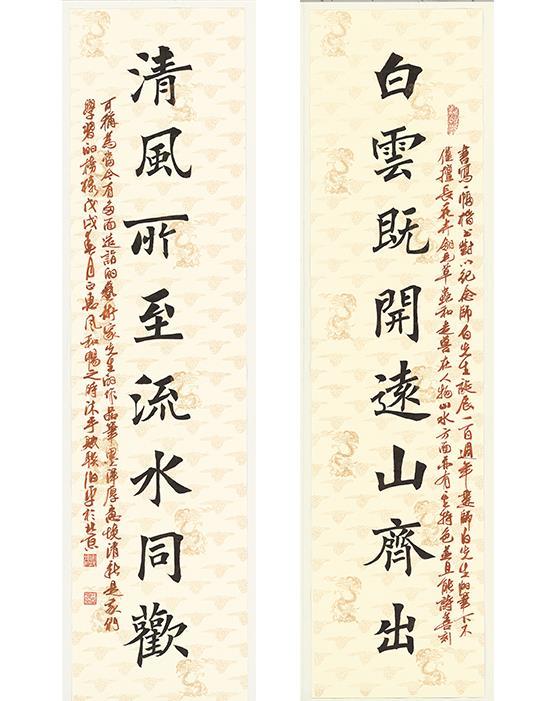 白雲既開遠山齊出
書寫一幅楷書對以紀念師白先生誕辰一百週年婁師白先生的筆下不
僅擅長花卉翎毛草蟲和走獸在人物山水方面亦有其特色並且能詩善刻
清風所至流水同歡
可稱為當今有多面造詣的藝術家先生的作品筆墨渾厚意境清新是我們
學習的榜樣戊戌春月正惠風和暢之時沐手敬於北京